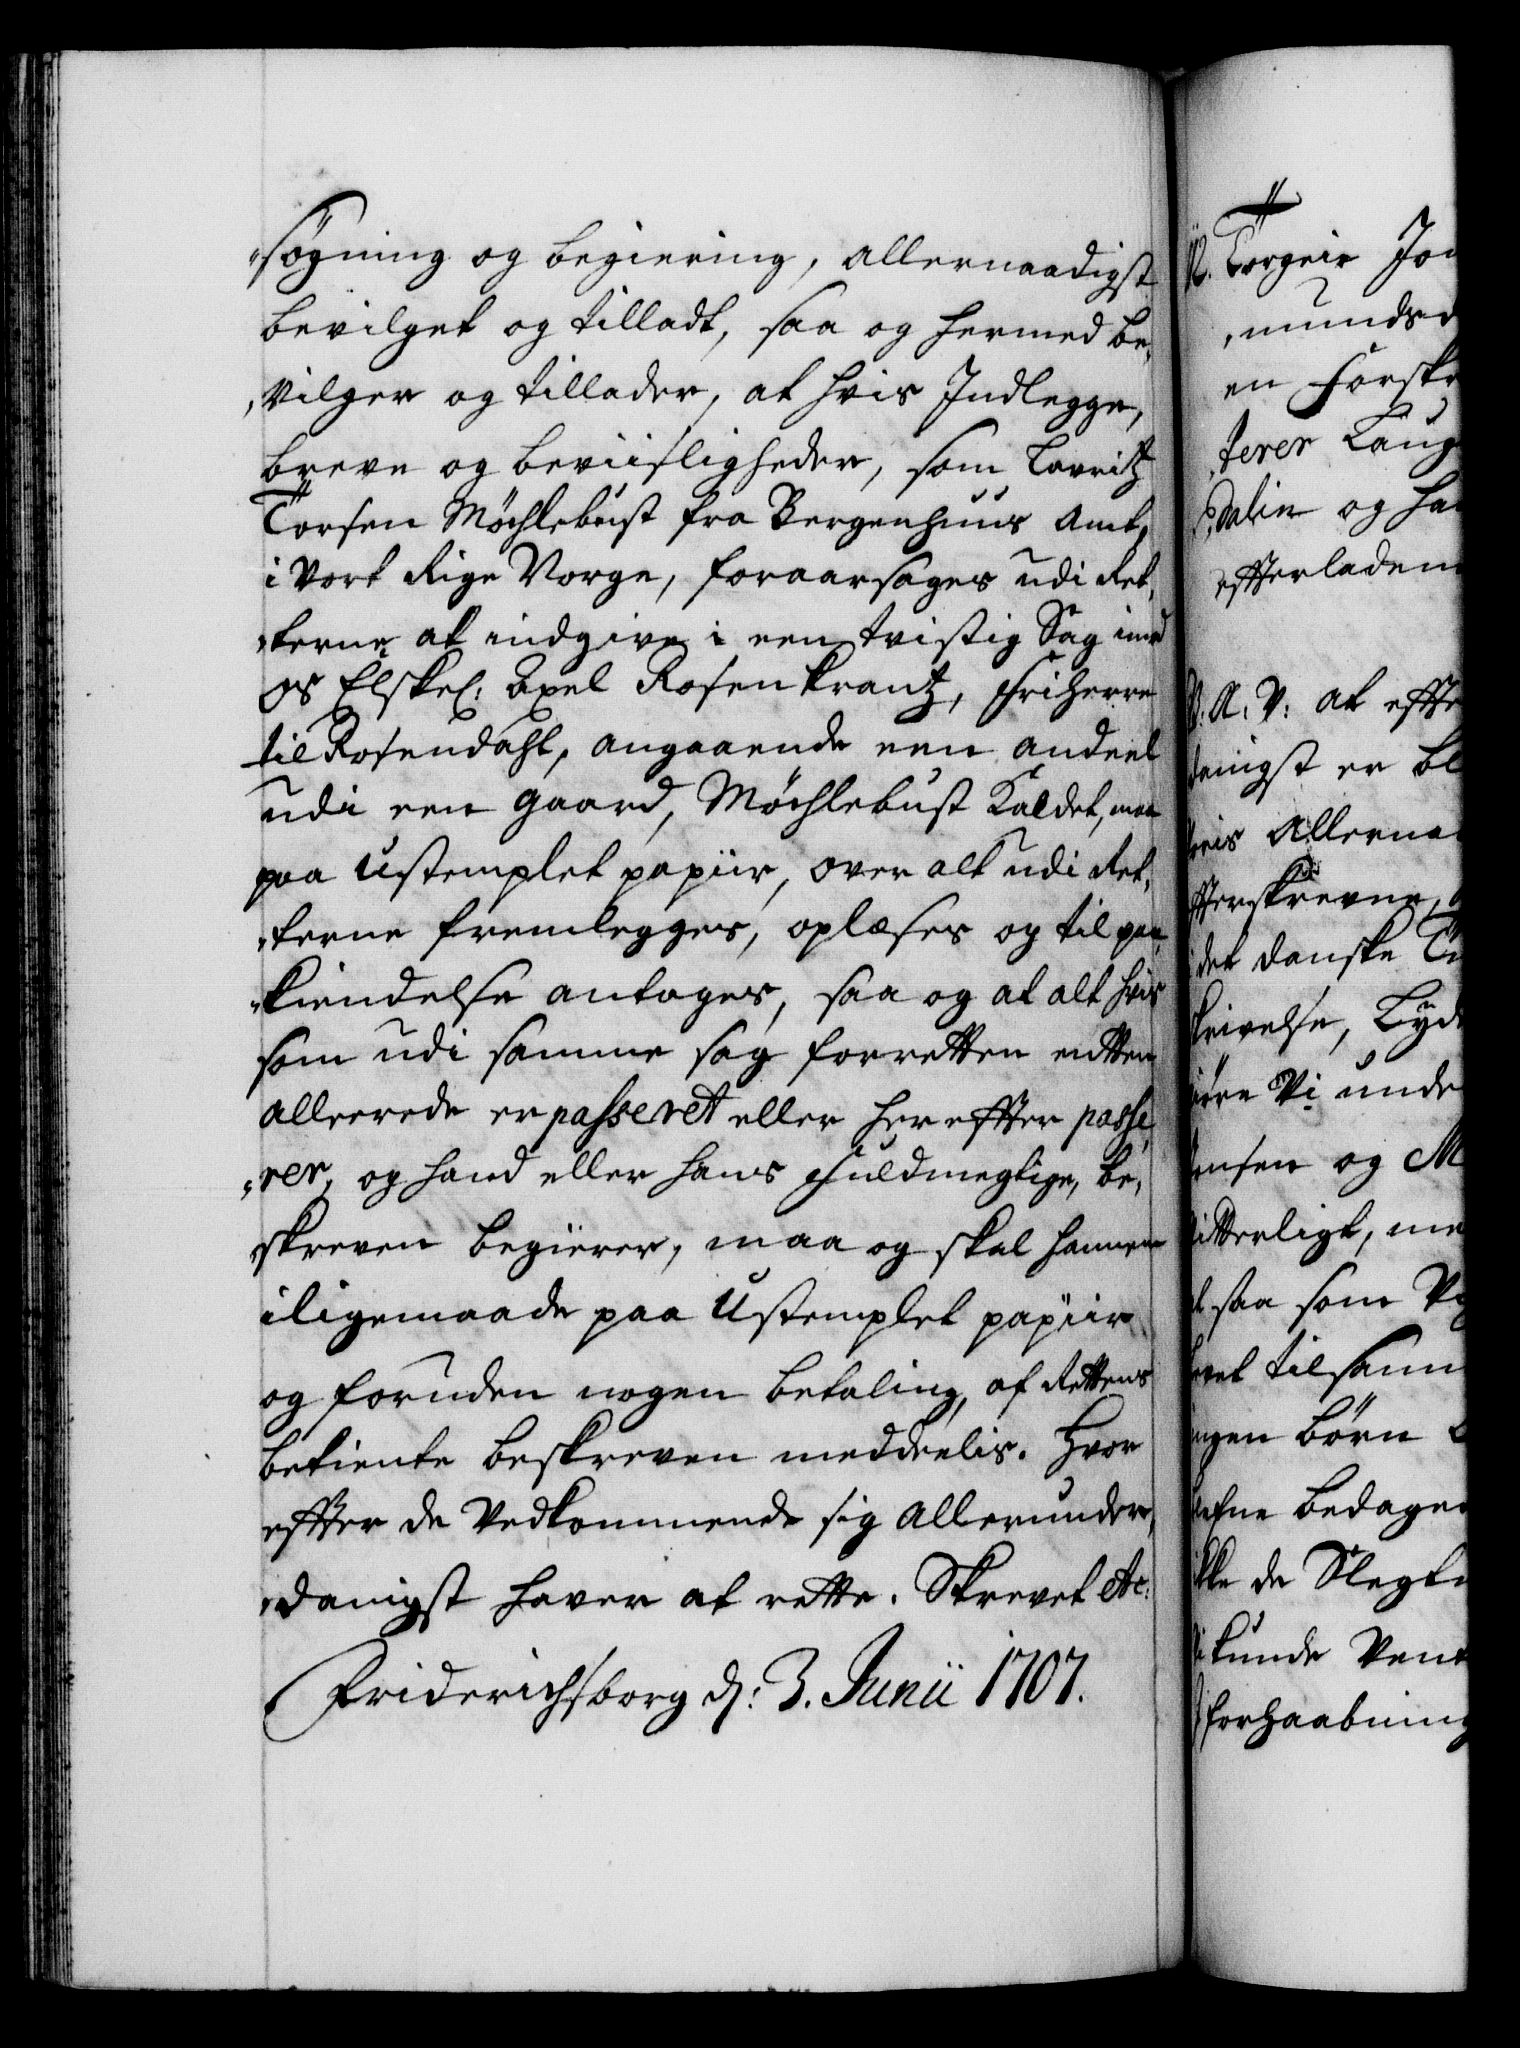 „søgning og begiering, allernaadigst
bevilget og tilladt, saa og hermed be„
„vilger og tillader, at hvis Indlegge,
breve og beviisligheder, som Lauritz
Torsen Møchlebust fra Bergenhuus Amt,
i vort Rige Norge, foraarsages udi Ret„
„terne at indgive i een tvistig Sag imod
os Elskel: Axel Rosenkrantz, Friherre
til Rosendahl, angaaende een andeel
udi een gaard, Møchlebust kaldet, maa
paa Ustemplet papiir, over alt udi Ret„
„terne fremlegges, oplæses og til paa„
„kiendelse antages, saa og at alt hvis
som udi samme sag for retten entten
allereede er passeret eller herefter passe„
„rer, og hand eller hans Fuldmegtige, be„
skreven begierer, maa og skal hannem
iligemaade paa Ustemplet papiir
og foruden nogen betaling, af Rettens
betiente beskreven meddeelis. Hvor
effter de Vedkommende sig allerunder„
„danigst haver at rette. Skrevet etc:
Friderichsborg d: 3. Junii 1707.
N. Torgeir Jon
„munds d
en Forskr
terer Laug
dalin og ha
effterladen
V. A. V: at effte
danigst er bl
vis Allerna
ffterskrevne,
det danske
skrivelse, Lyd
iøre Vi unde
ensen og M
itterligt, me
saa som V
vet tilsam
ingen børn
efne bedage
ikke de Slegt
kunde Vent
forhaabning